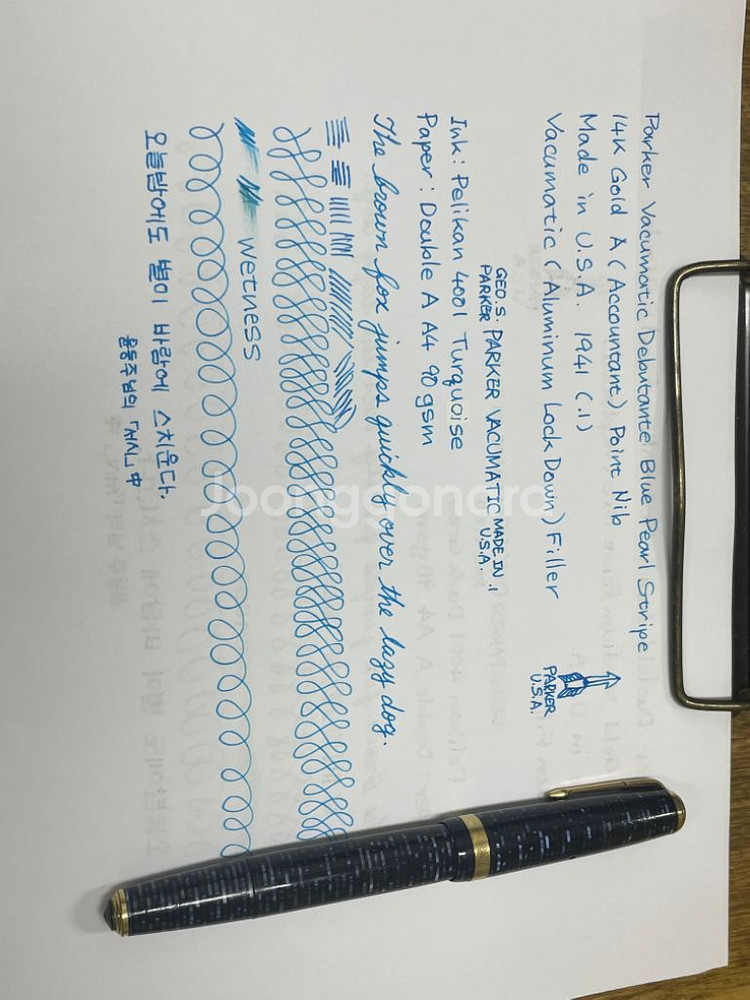 Parker Vacumatic Debutante Blue Pearl Stripe
14K Gold A (Accountant) Point Nib
Made in U.S.A. 1941 (.1)
Vacumatic (Aluminum Lock Down) Filler
PARKER
U.S.A.
GEO.S. PARKER VACUMATIC MADE IN .1
PARKER U.S.A.
Ink : Pelikan 4001 Turquoise
Paper : Double A A4 90 gsm
The brown fox jumps quickly over the lazy dog.
Wetness
오늘밤에도 별이 바람에 스치운다.
윤동주님의 「서시」 中
Joonggonara